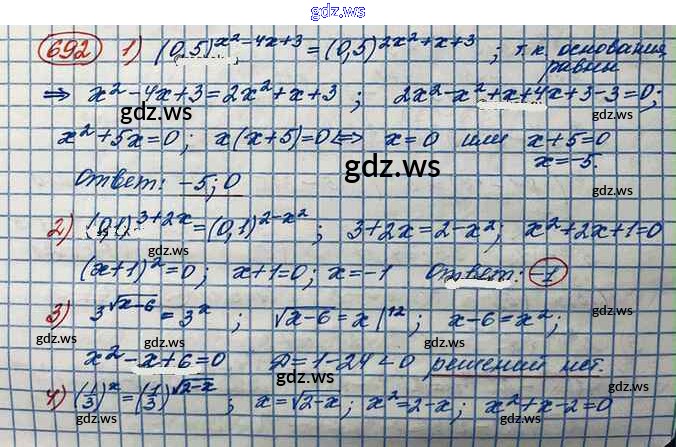 gdz.ws
692 1) (0,5)^{x²-4x+3} = (0,5)^{2x²+x+3} ; т.к. основания равны
gdz.ws
⇒ x²-4x+3=2x²+x+3 ; 2x²-x²+x+4x+3-3=0;
gdz.ws gdz.ws
x²+5x=0; x(x+5)=0 ⇔ x=0 или x+5=0
x=-5.
gdz.ws
Ответ: -5; 0
gdz.ws
2) (0,1)^{3+2x}=(0,1)^{2-x²} ; 3+2x=2-x²; x²+2x+1=0
gdz.ws gdz.ws
(x+1)²=0; x+1=0; x=-1 Ответ: -1
3) 3^{√x-6} = 3^x ; √x-6 = x |² ; x-6=x²;
gdz.ws gdz.ws gdz.ws
x²-x+6=0 D=1-24<0 решений нет.
gdz.ws
4) (1/3)^x = (1/3)^{√2-x} ; x=√2-x; x²=2-x; x²+x-2=0
gdz.ws gdz.ws